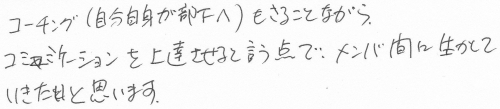 コーチング(自分自身が部下へ)もさることながら、
コミュニケーションを上達させると言う点で、メンバ間に生かして
いきたいと思います。